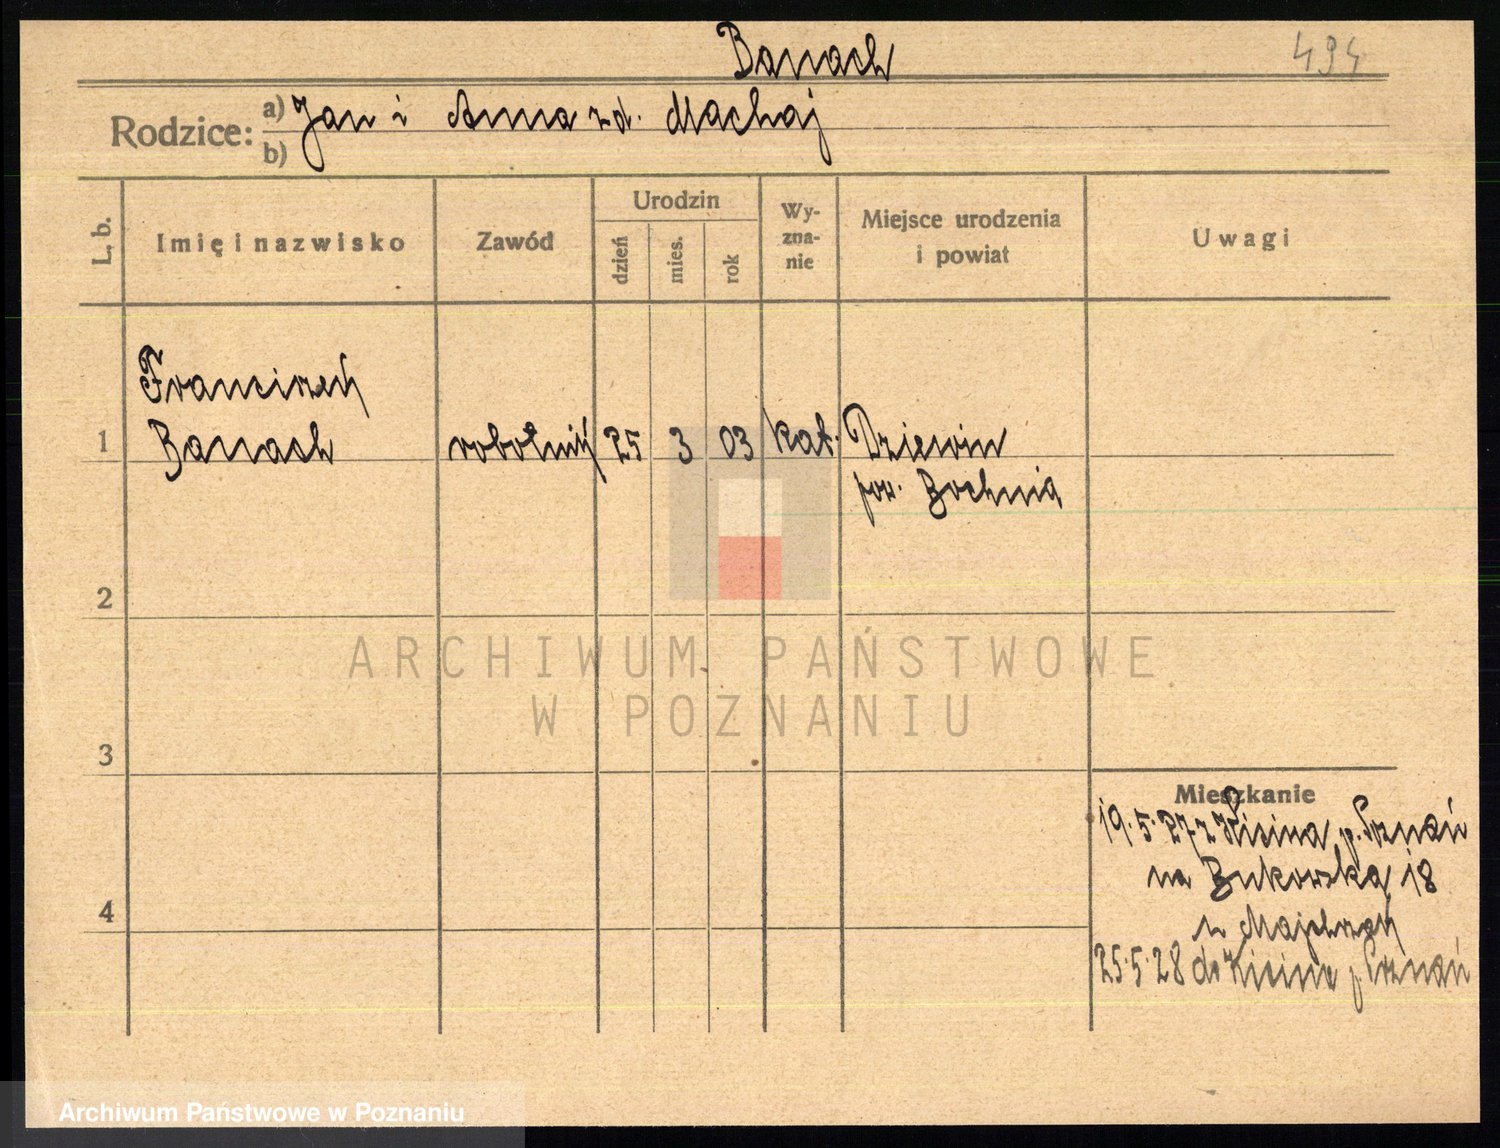 Banach
494
Rodzice: a) Jan i Anna zd. Machaj
b)
L. b.
Imię i nazwisko
Zawód
Urodzin
dzień
mies.
rok
Wy-
zna-
nie
Miejsce urodzenia
i powiat
Uwagi
Franciszek
1 Banach robotnik 25 3 03 kat. Dziewin
pow. Bochnia
2
ARCHIWUM PAŃSTWOWE
W POZNANIU
3
Mieszkanie
19.5.27 z Kicina p. Poznań
na Bukowską 18
u Majchrzak
4
25.5.28 do Kicina p. Poznań
Archiwum Państwowe w Poznaniu